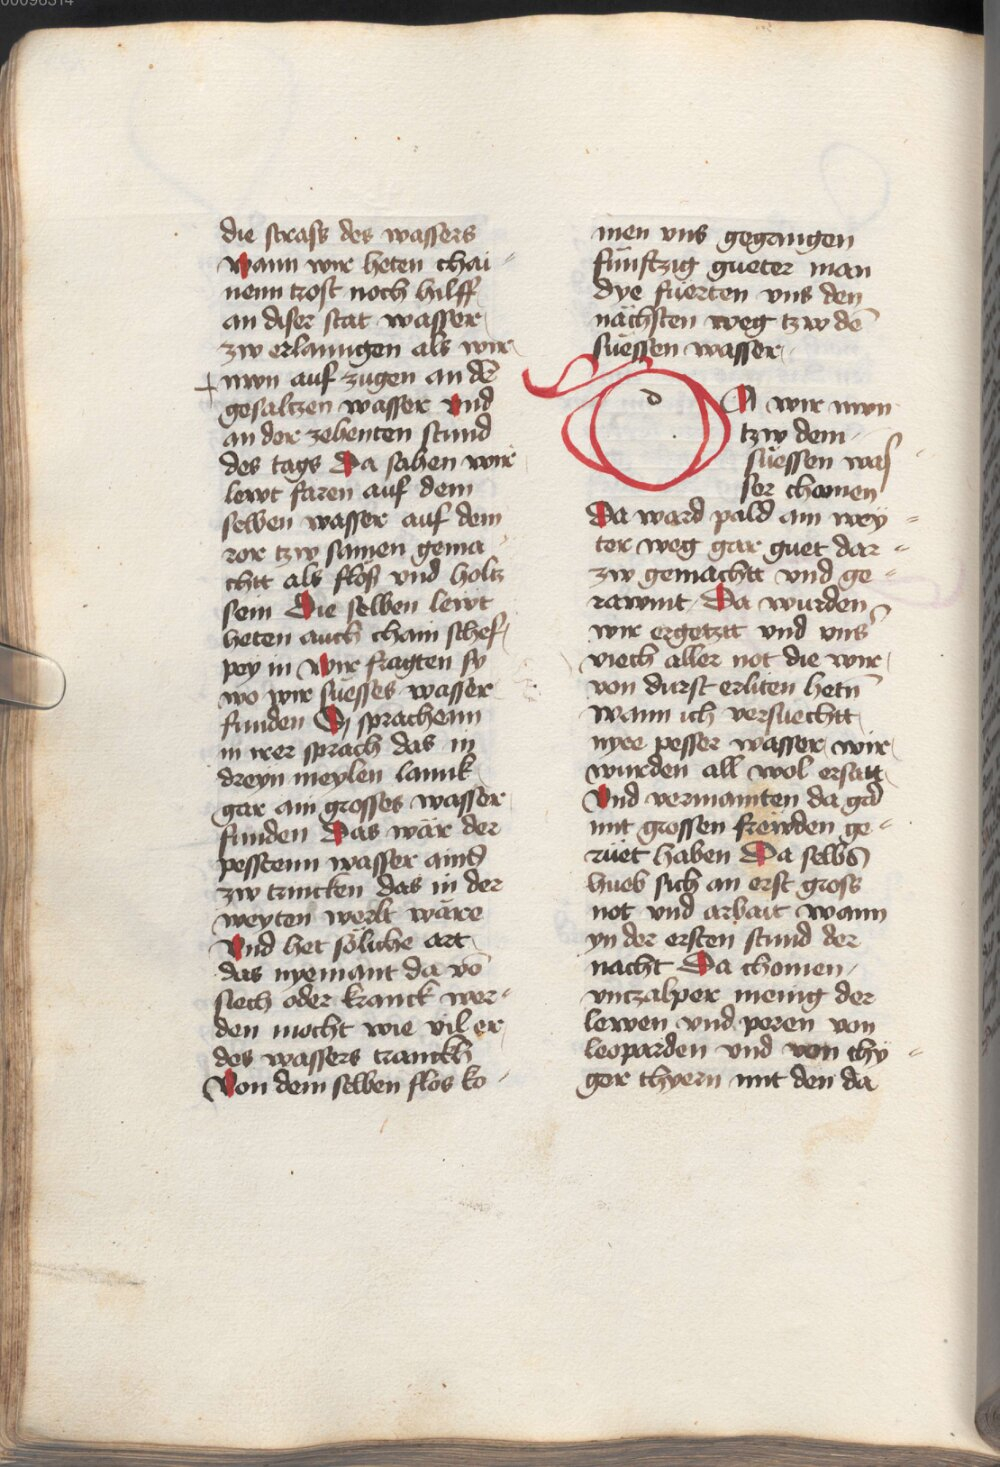 die strass des wassers
wann wir heten chai-
nenn trost noch hilff
an diser stat wasser
zw erlanngen als wir
nwn auf zugen an dē
gesaltzen wasser vnd
an der zehenten stund
des tags Da sahen wir
lewt faren auf dem
selben wasser auf dem
ror tzw samen gema
chtt als floß vnd holtz
sein Die selben lewt
heten auch chain schef
pey in Wir fragten sy
wo wir suesses wasser
funden Sy sprachenn
in irer sprach das in
dreyn meylen lannk
gar ain grosses wasser
funden Das wär der
pesstenn wasser ains
zw trincken das in der
weyten werlt wäre
Vnd het söliche art
das nyemant da vō
siech oder kranck wer-
den mocht wie vil er
des wassers tranckh
Von dem selben flos ko-
men vns gegangen
fünftzig gueter man
dye füerten vns den
nächsten weg tzw dē
süessen wasser
DA wir nwn
tzw dem
süessen was
ser chomen
Da ward pald ain wey-
ter weg gar guet dar-
zw gemachtt vnd ge-
rawmt Da wurden
wir ergetzt vnd vns
viech aller not die wir
von durst erliten hetn̄
wann ich versuechtt
nyre pesser wasser wir
wurden all wol ersatt
Vnd vermainten da
mit grossen frewden ge-
rüet haben Da selbs
hueb sich an erst gross
not vnd arbait wann
yn der ersten stund der
nacht Da chomen
vnczalper menig der
lewen vnd peren von
leoparden vnd von thy-
ger thyern mit den da